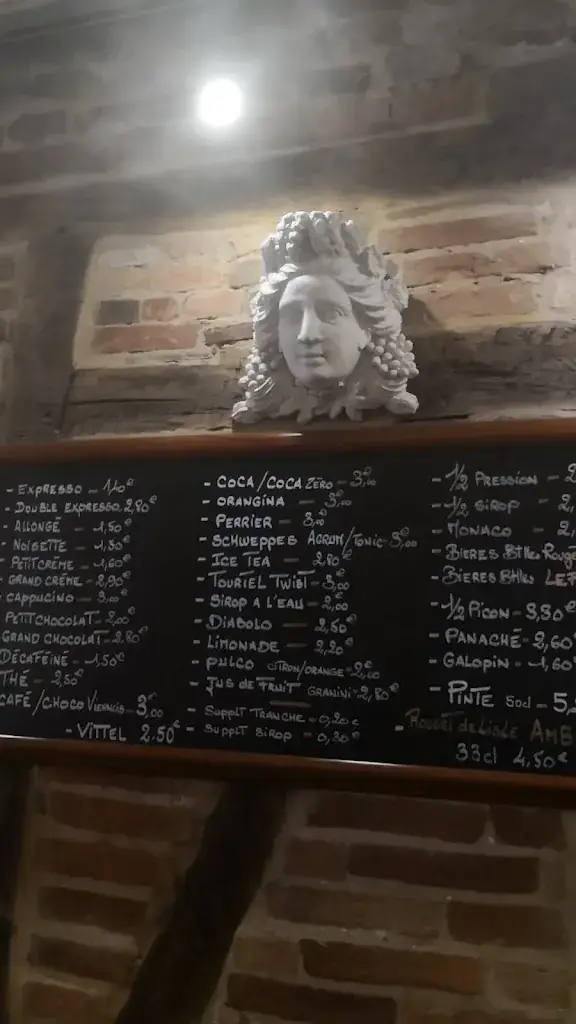 - EXPRESSO - 1,40€
- DOUBLE EXPRESSO. 2,80€
- ALLONGÉ - 1,50€
- NOISETTE - 1,30€
- PETIT CRÈME - 1,60€
- GRAND CRÈME - 2,90€
- CAPPUCINO - 3,00€
PETIT CHOCOLAT - 2,00€
GRAND CHOCOLAT - 2.80€
DÉCAFÉINÉ - 1,50€
THÉ - 2,50€
CAFÉ / CHOCO VIENNOIS - 3,00€
- VITTEL 2.50€
- COCA / COCA ZÉRO - 3,00€
- ORANGINA - 3,00€
- PERRIER - 3,00
- SCHWEPPES AGRUM / TONIC - 3,00€
- ICE TEA - 2,80€
- TOURTEL TWIST - 3,00€
- SIROP A L'EAU - 2,00€
- DIABOLO - 2,50€
- LIMONADE - 2,20€
- PULCO CITRON/ORANGE - 2,60€
- JUS DE FRUIT GRANINI - 2,80€
- SUPPLT TRANCHE - 0,20€
- SUPPLT SIROP - 0,20€
- 1/2 PRESSION - 2
- 1/2 SIROP - 2,
- MONACO - 2,
- BIERES Btlles Rouge
- BIERES Btlles LEF
- 1/2 PICON - 3,30€
- PANACHÉ - 2,60
- GALOPIN - 1,60
- PINTE 50cl - 5,
- ROUGET de LISLE AMB
33cl 4,50€